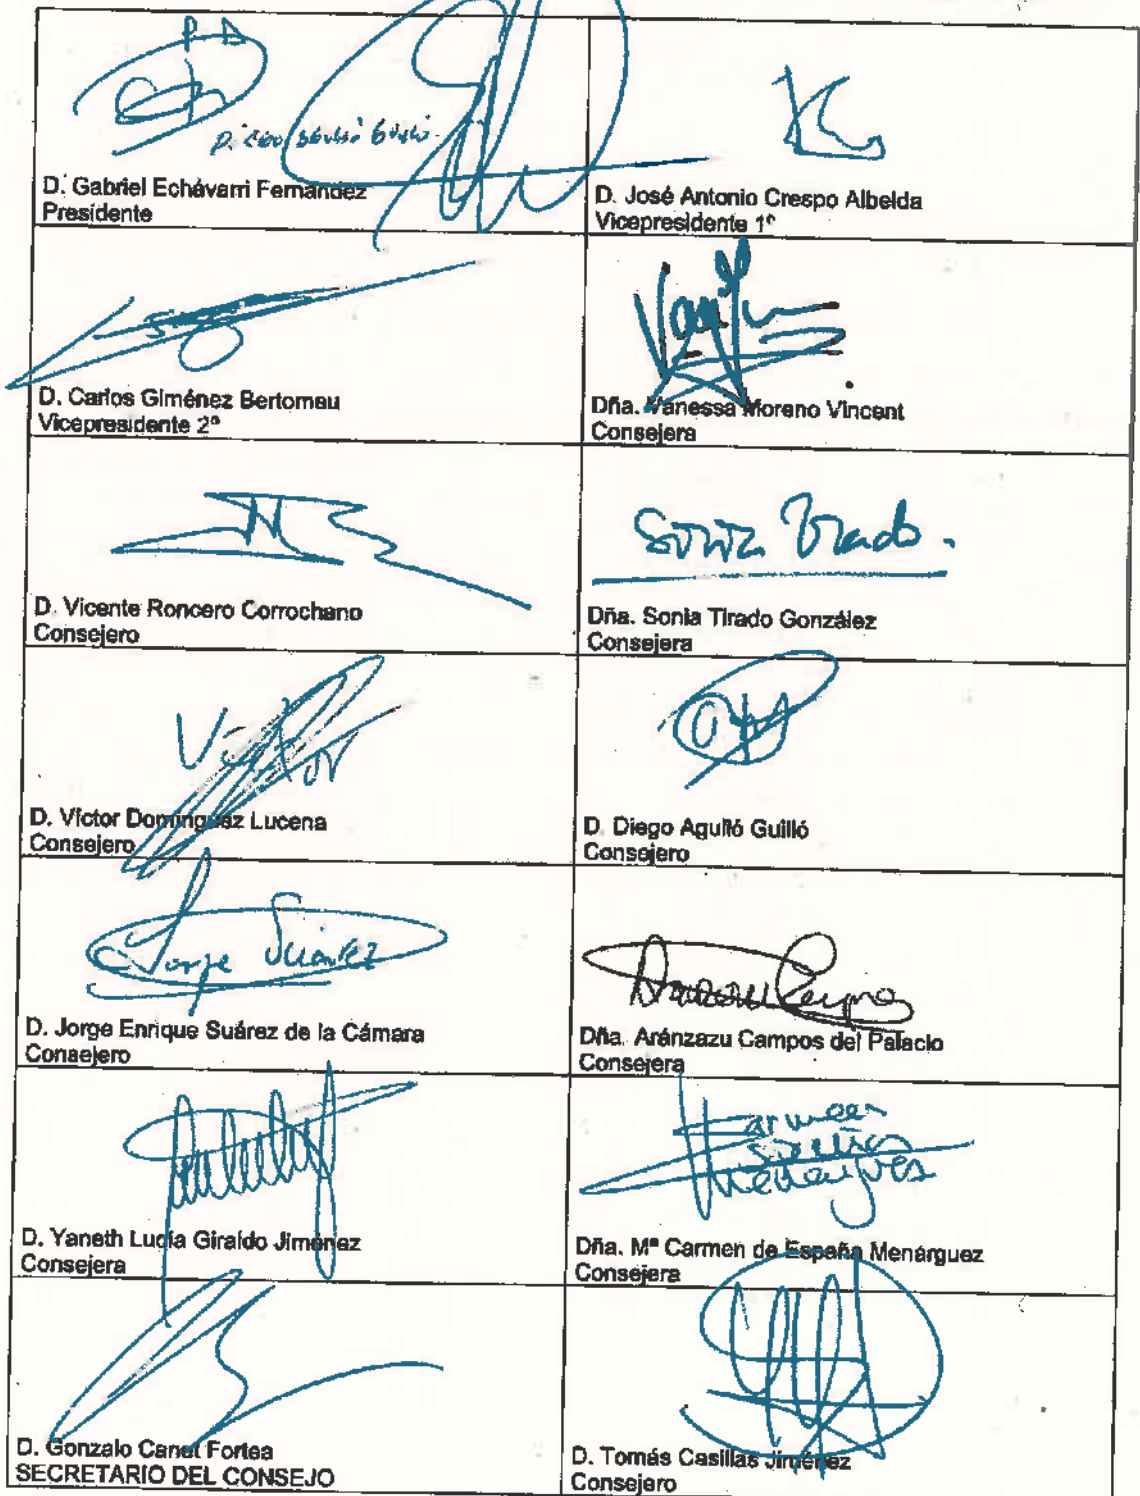 P D
D. Gabriel Echávarri Fernández
Presidente
D. José Antonio Crespo Albelda
Vicepresidente 1º
D. Carlos Giménez Bertomeu
Vicepresidente 2ª
Dña. Vanessa Moreno Vincent
Consejera
D. Vicente Roncero Corrochano
Consejero
Sonia Tirado.
Dña. Sonia Tirado González
Consejera
Víctor
D. Víctor Domínguez Lucena
Consejero
D. Diego Agulló Guilló
Consejero
Jorge Suárez
D. Jorge Enrique Suárez de la Cámara
Consejero
Dña. Aránzazu Campos del Palacio
Consejera
D. Yaneth Lucía Giraldo Jiménez
Consejera
Carmen
España
Menárguez
Dña. Mª Carmen de España Menárguez
Consejera
D. Gonzalo Canet Fortea
SECRETARIO DEL CONSEJO
D. Tomás Casillas Jiménez
Consejero